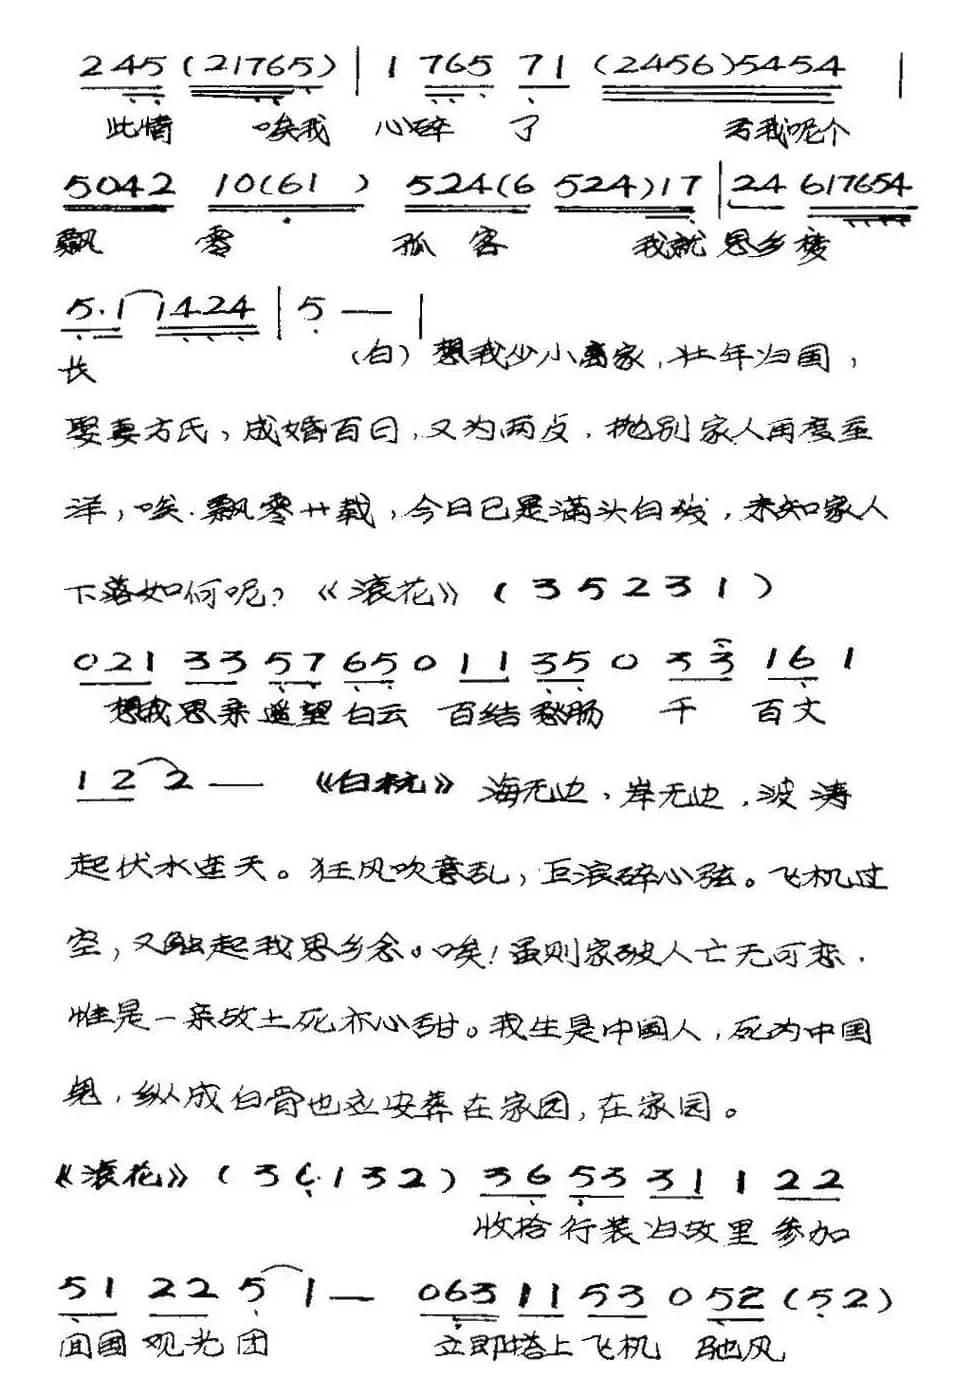 245 (21765) | 1 765 71 (2456)5454 |
此情 唉我 心碎 了 否我呢个
5042 10(61 ) 524(6 524)17 | 24 617654
飘 零 孤 客 我就 思乡 梭
5·1 1424 | 5 — |
长 (白) 想我少小离家,壮年归国,
娶妻方氏,成婚百日,又为两歺,抛别家人再度重
洋,唉.飘零廿载,今日已是满头白发,未知家人
下落如何呢?《滚花》(35231)
021 33 57 65 0 11 35 0 33 16 1
想我思亲遥望白云 百结愁肠 千 百丈
12 2 — 《白杬》海无边,岸无边,波涛
起伏水连天。狂风吹意乱,巨浪碎心弦。飞机过
空,又触起我思乡念。唉!虽则家破人亡无可恋.
惟是一亲故土死亦心甜。我生是中国人,死为中国
鬼,纵成白骨也应安葬在家园,在家园。
《滚花》(36·132) 36 53 31 1 22
收拾行装归故里参加
51 22 5 1 — 063 11 53 0 52 (52)
回国观光团 立即塔上飞机 驰风